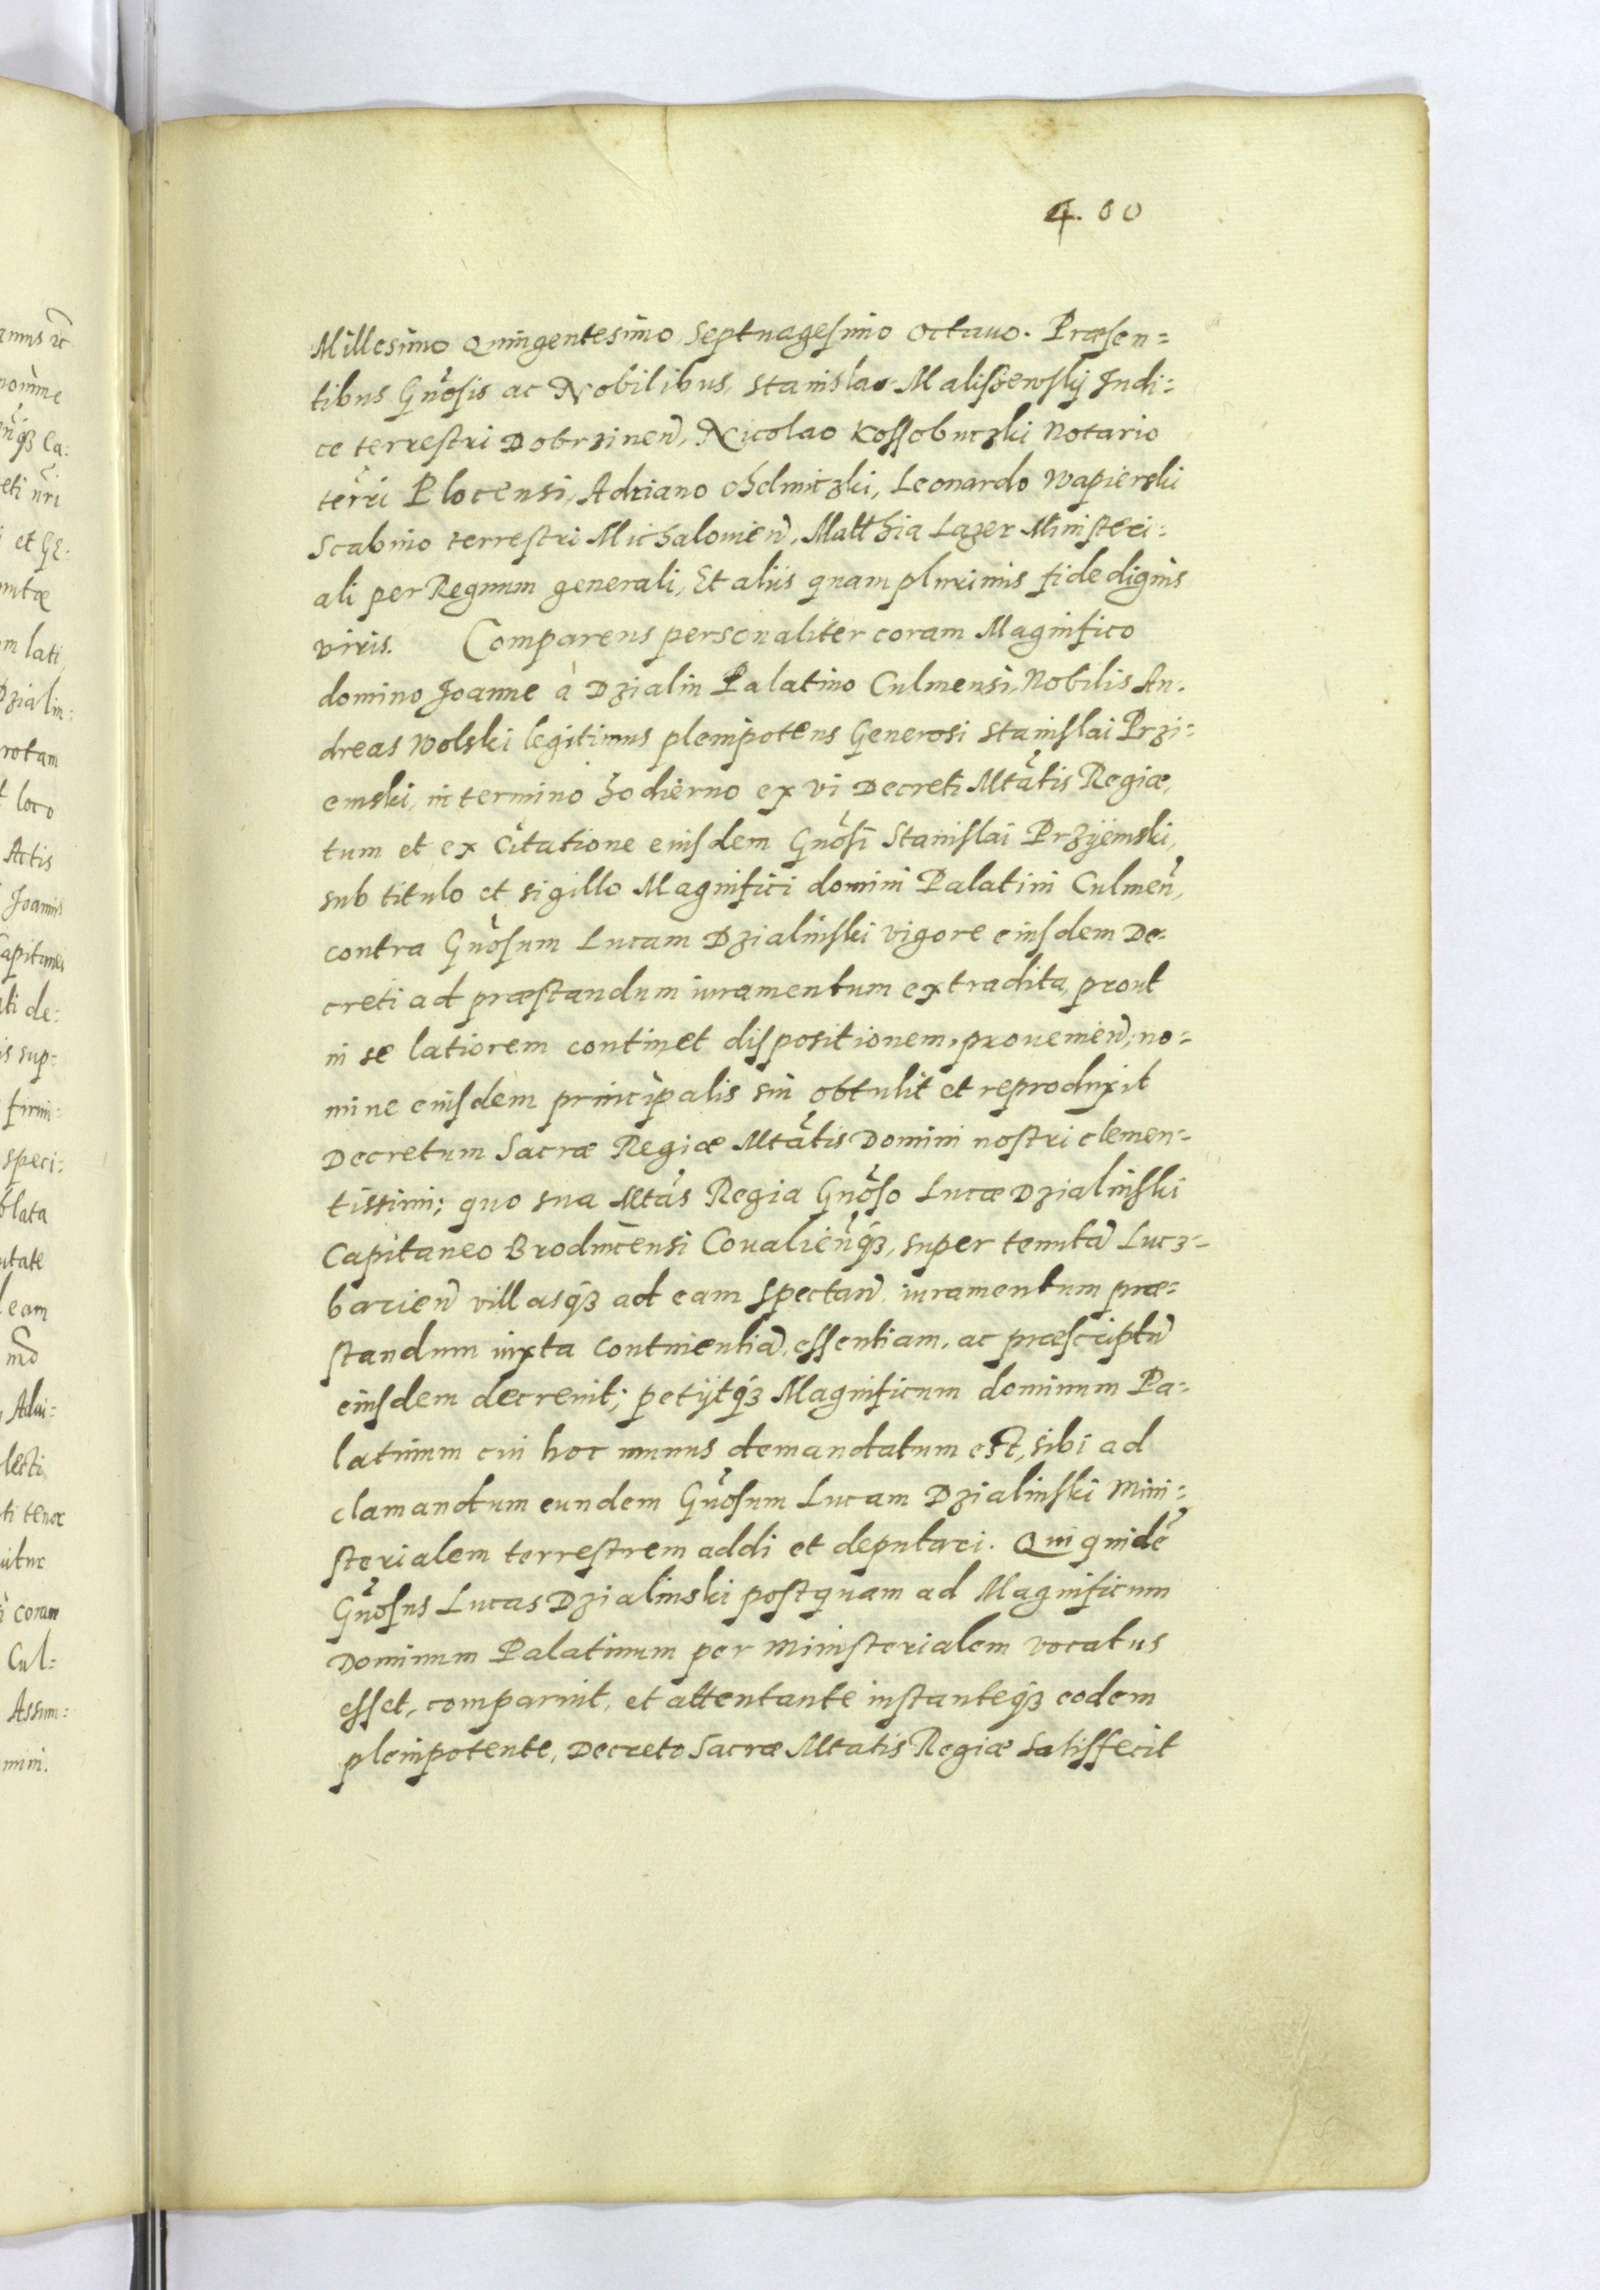 4.00
Millesimo Quingentesimo Septuagesimo octauo. Præsen=
tibus Gnõsis ac Nobilibus, Stanislao Malißewskÿ Judi=
ce terrestri Dobrzineñ, Nicolao Kossobuczki Notario
terri Plocensi, Adriano Chelmiczki, Leonardo Wapierski
Scabino terrestri Michalouieñ, Matthia Lazer Ministeri=
ali per Regnum generali, Et aliis quam plurimis fide dignis
viris. Comparens personaliter coram Magnifico
domino Joanne à Dzialin Palatino Culmensi, Nobilis An.
dreas Wolski legitimus plenipotens Generosi Stanislai Przi=
emski, in termino hodierno ex vi Decreti Mtãtis Regiæ,
tum et ex citatione eiusdem Gnõsi Stanislai Przÿemski,
sub titulo et sigillo Magnifici domini Palatini Culmeñ,
contra Gnõsum Lucam Dzialinski vigore eiusdem De=
creti ad præstandum iuramentum extradita, prout
in se latiorem continet dispositionem, proueuieñ, no=
mine eiusdem principalis sui obtulit et reproduxit
Decretum Sacræ Regiæ Mtãtis Domini nostri clemen=
tissimi; quo sua Mtãs Regia Gnõso Lucæ Dzialinski
Capitaneo Brodnicensi Coualieñq3, super tenutã Lucz=
barieñ villasq3 ad eam spectañ, iuramentum præ=
standum iuxta continentiã, essentiam, ac præscriptũ
eiusdem decreuit; petÿtq3 Magnificum dominum Pa=
latinum cui hoc munus demandatum est, sibi ad
clamandum eundem Gnõsum Lucam Dzialinski Mini=
sterialem terrestrem addi et deputari. Qui quidẽ
Gnõsus Lucas Dzialinski postquam ad Magnificum
Dominum Palatinum per Ministerialem vocatus
esset, comparuit, et attentante instanteq3 eodem
plenipotente, Decreto Sacræ Mtatis Regiæ Satisfecit